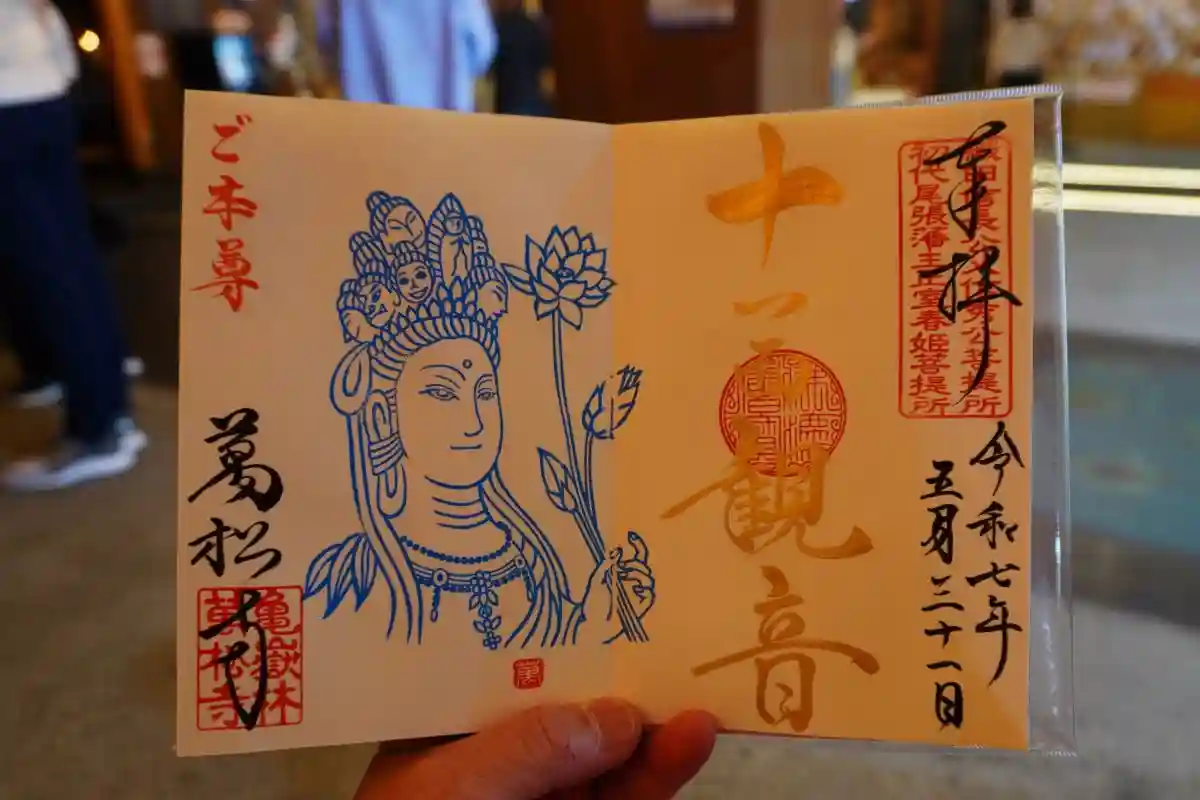 奉拝
織田信長公父信秀公菩提所
初代尾張藩主正室春姫菩提所
令和七年
五月三十一日
十一面観音
ご本尊
萬松寺
亀嶽林
萬松寺
萬